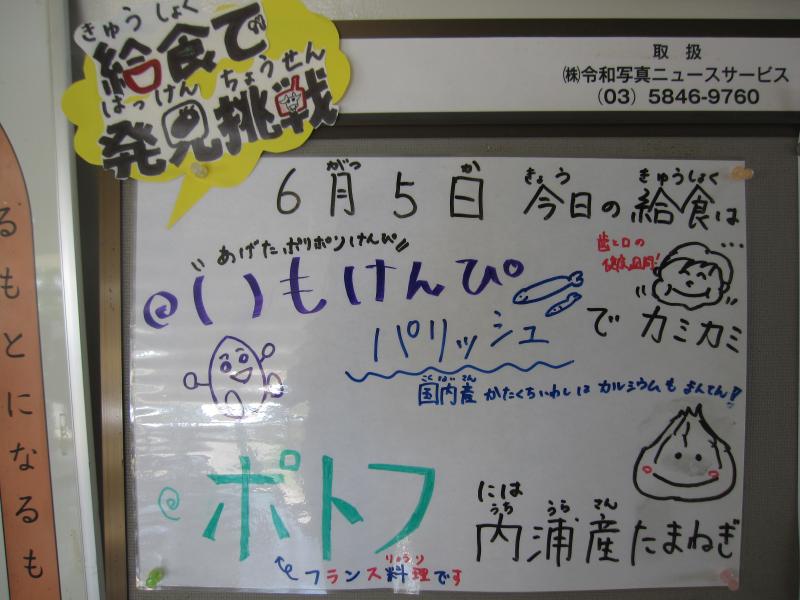 きゅう しょく
給食で
はっけん ちょうせん
発見挑戦
取 扱
㈱令和写真ニュースサービス
(03) 5846-9760
がつ か きょう きゅうしょく
6月5日 今日の給食は…
歯と口の
あげたポリポリけんぴ
いもけんぴ
パリッシュ
でカミカミ
こくないさん
国内産 かたくちいわしは カルシウムも まんてん!
ポトフ
には
うち うら さん
内浦産たまねぎ
りょうり
フランス料理です
るもとになるも